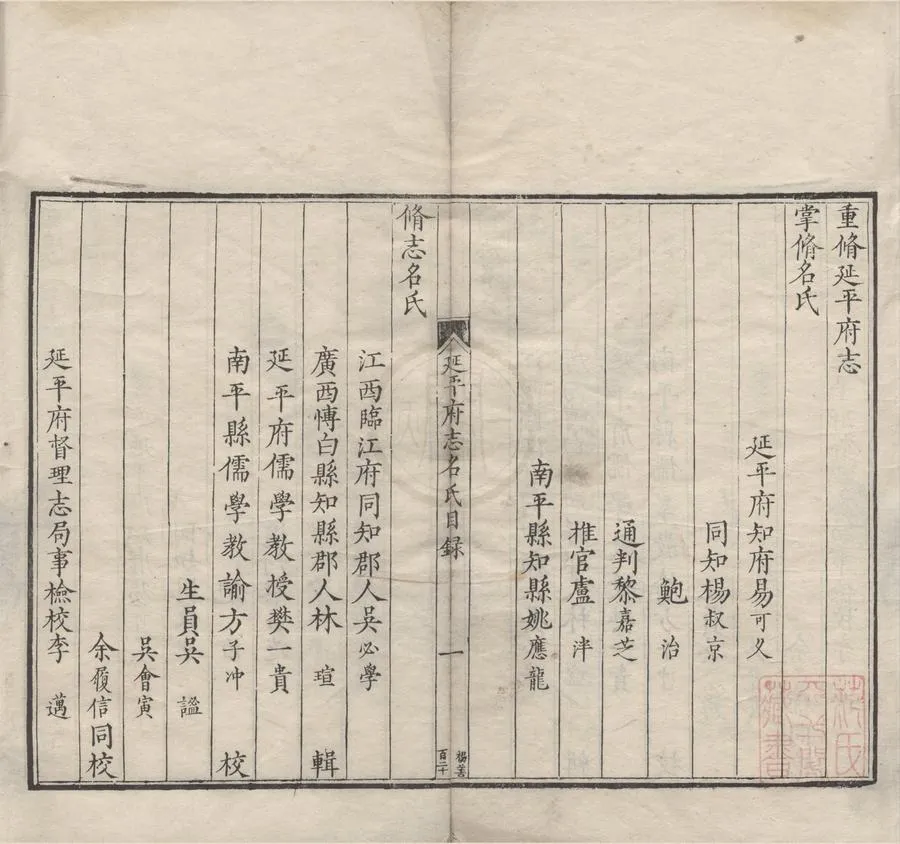 重脩延平府志
掌脩名氏
延平府知府易可久
同知楊叔京
鮑治
通判黎嘉芝
推官盧泮
南平縣知縣姚應龍
延平府志名氏目録 一
楊善
百二十
脩志名氏
江西臨江府同知郡人吳必學
廣西博白縣知縣郡人林瑄 輯
延平府儒學教授樊一貴
南平縣儒學教諭方子冲 校
生員吳謐
吳會寅
余履信同校
延平府督理志局事檢校李邁